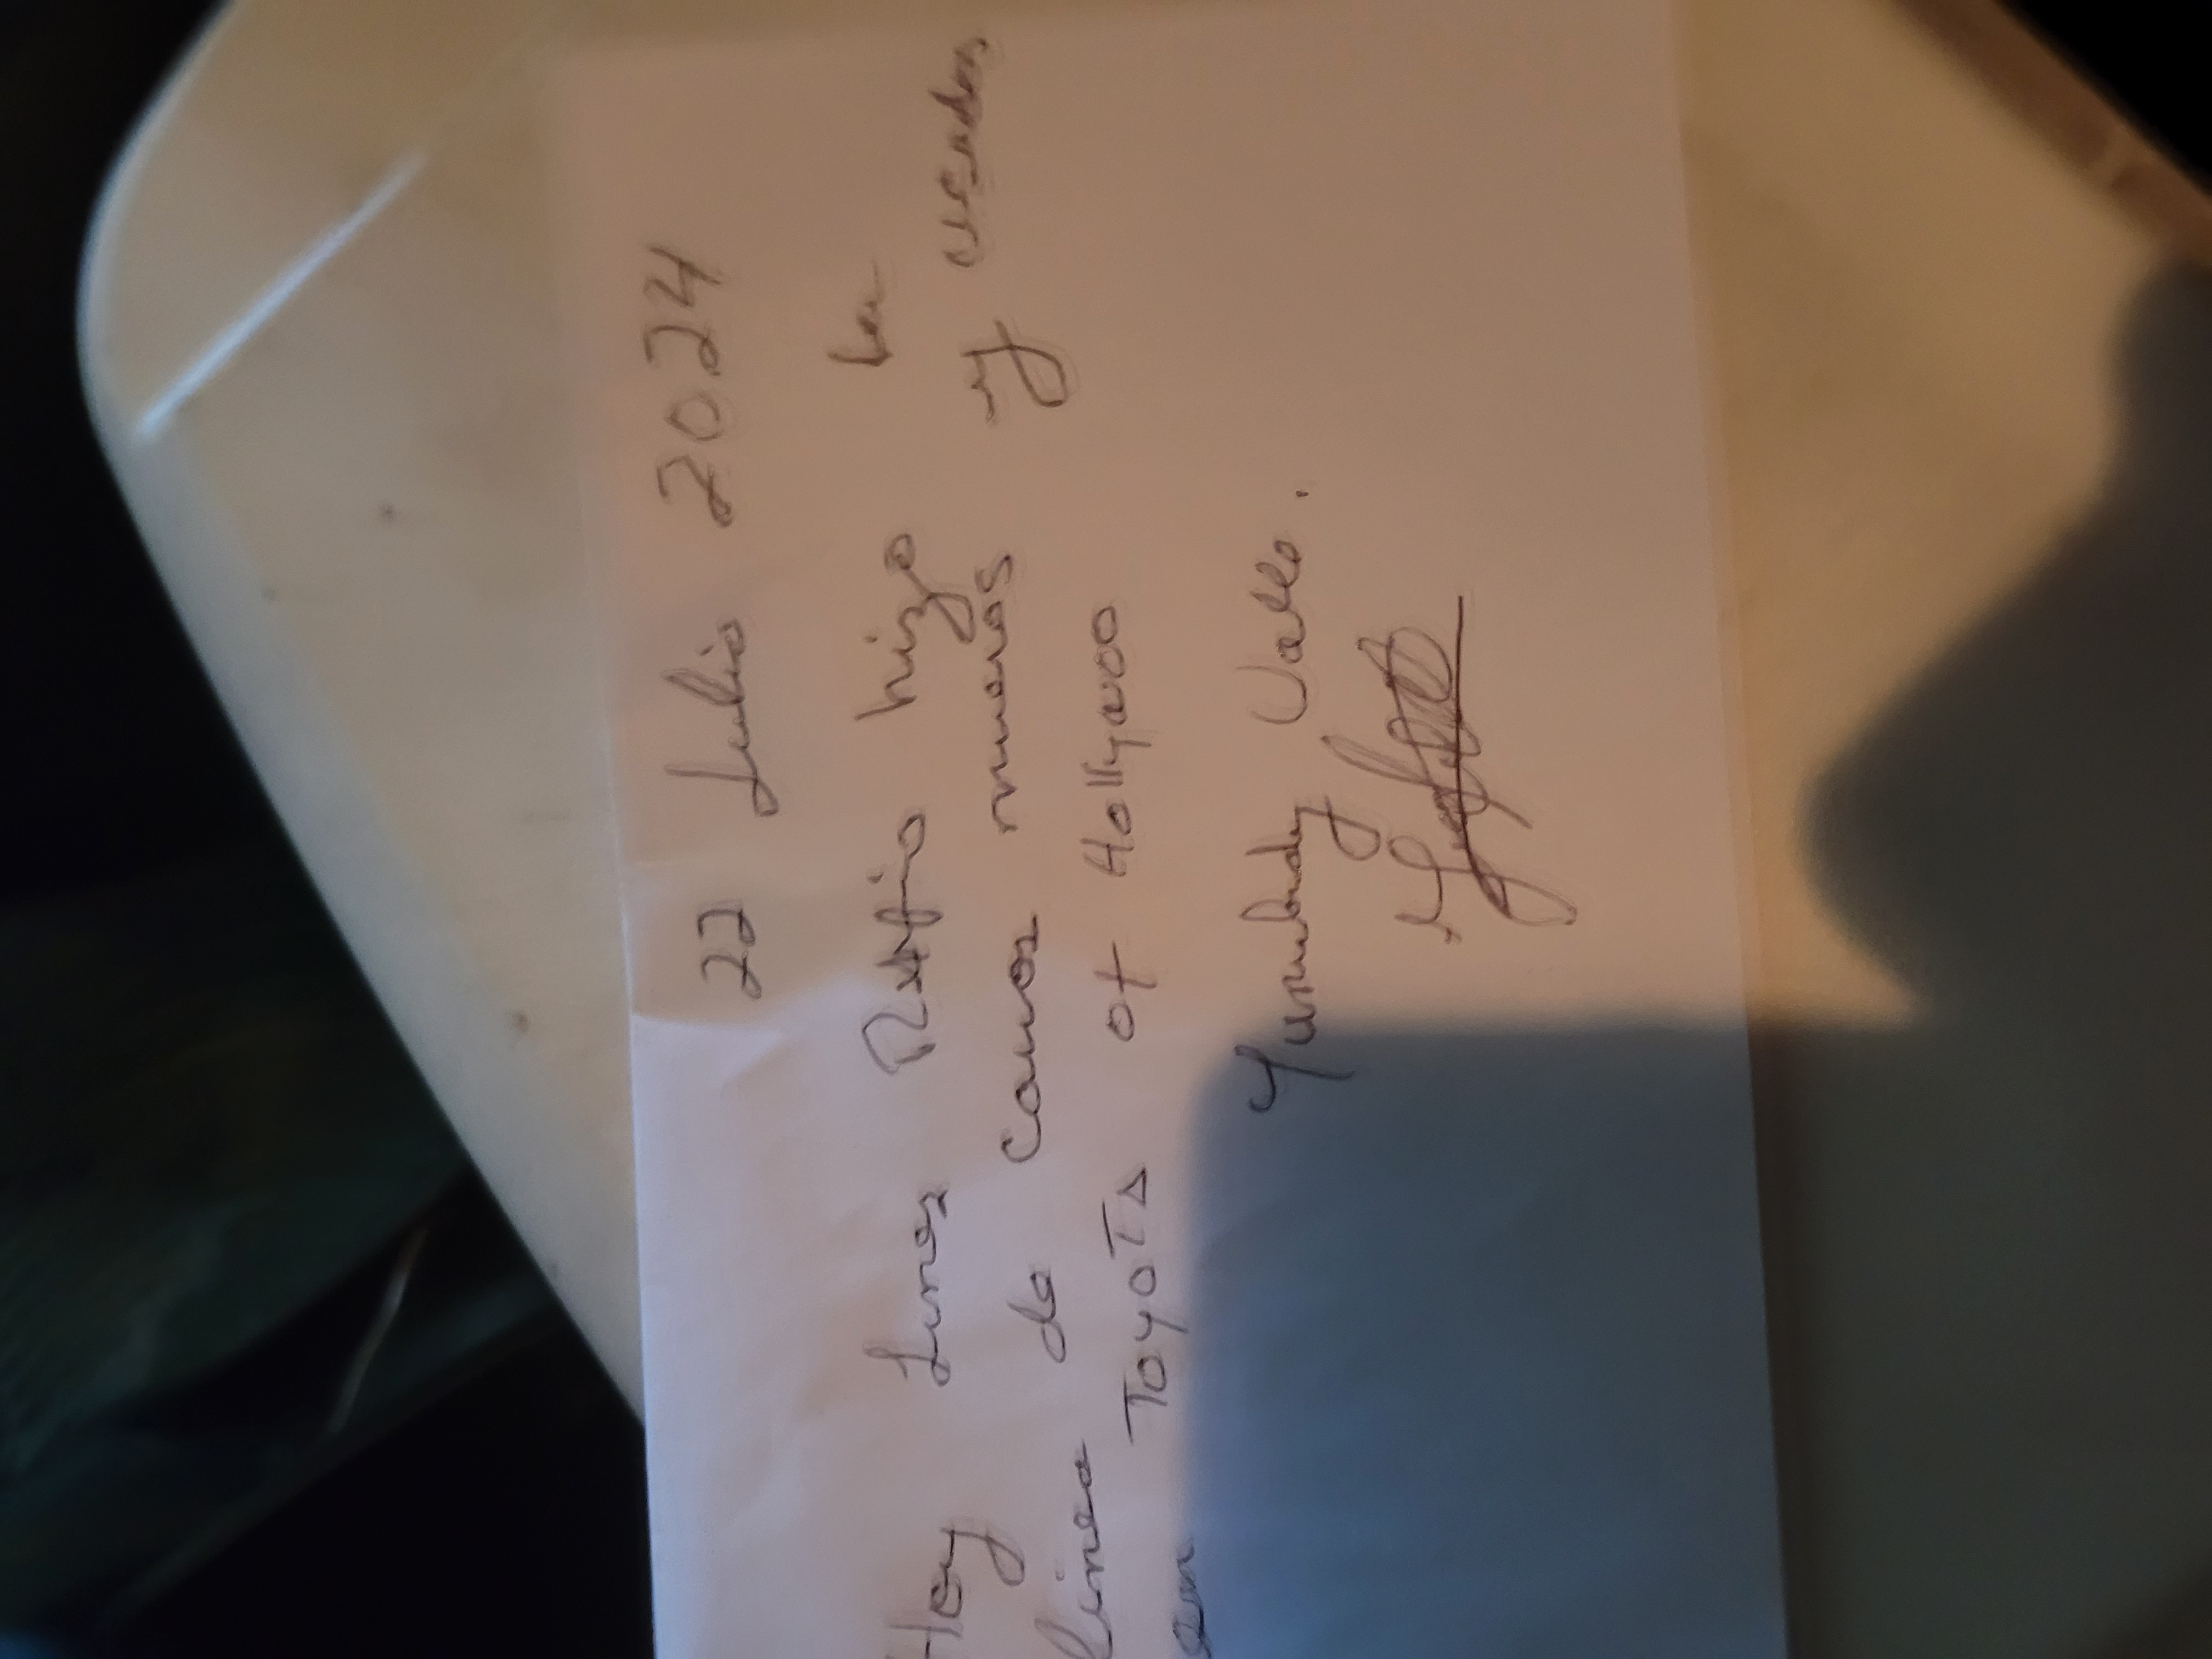 22 Julio 2024
Hoy Lunes Rufino hizo la
linea de carros nuevos y usados
en TOYOTA of Hollywoo
Yumandy Valle.